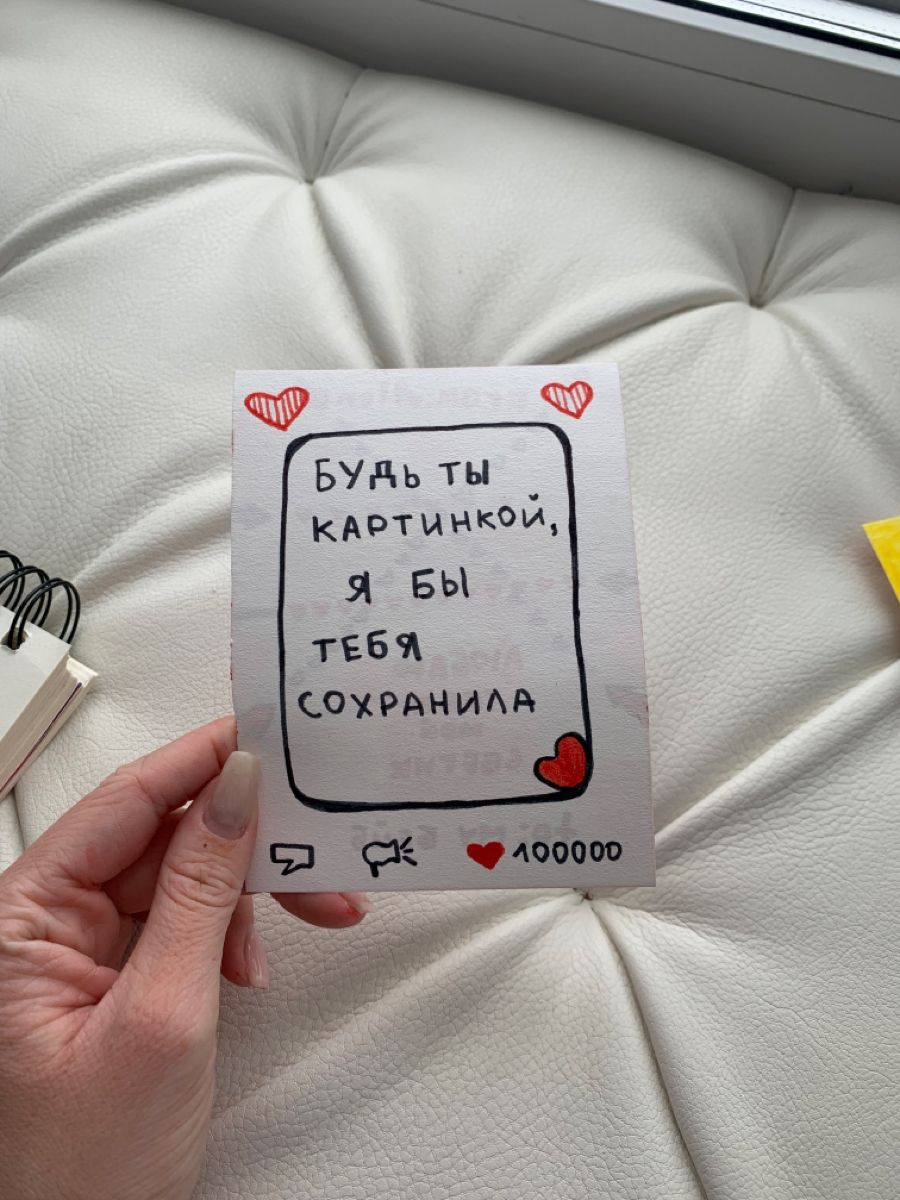 БУДЬ ТЫ
КАРТИНКОЙ,
Я БЫ
ТЕБЯ
СОХРАНИЛА
100000